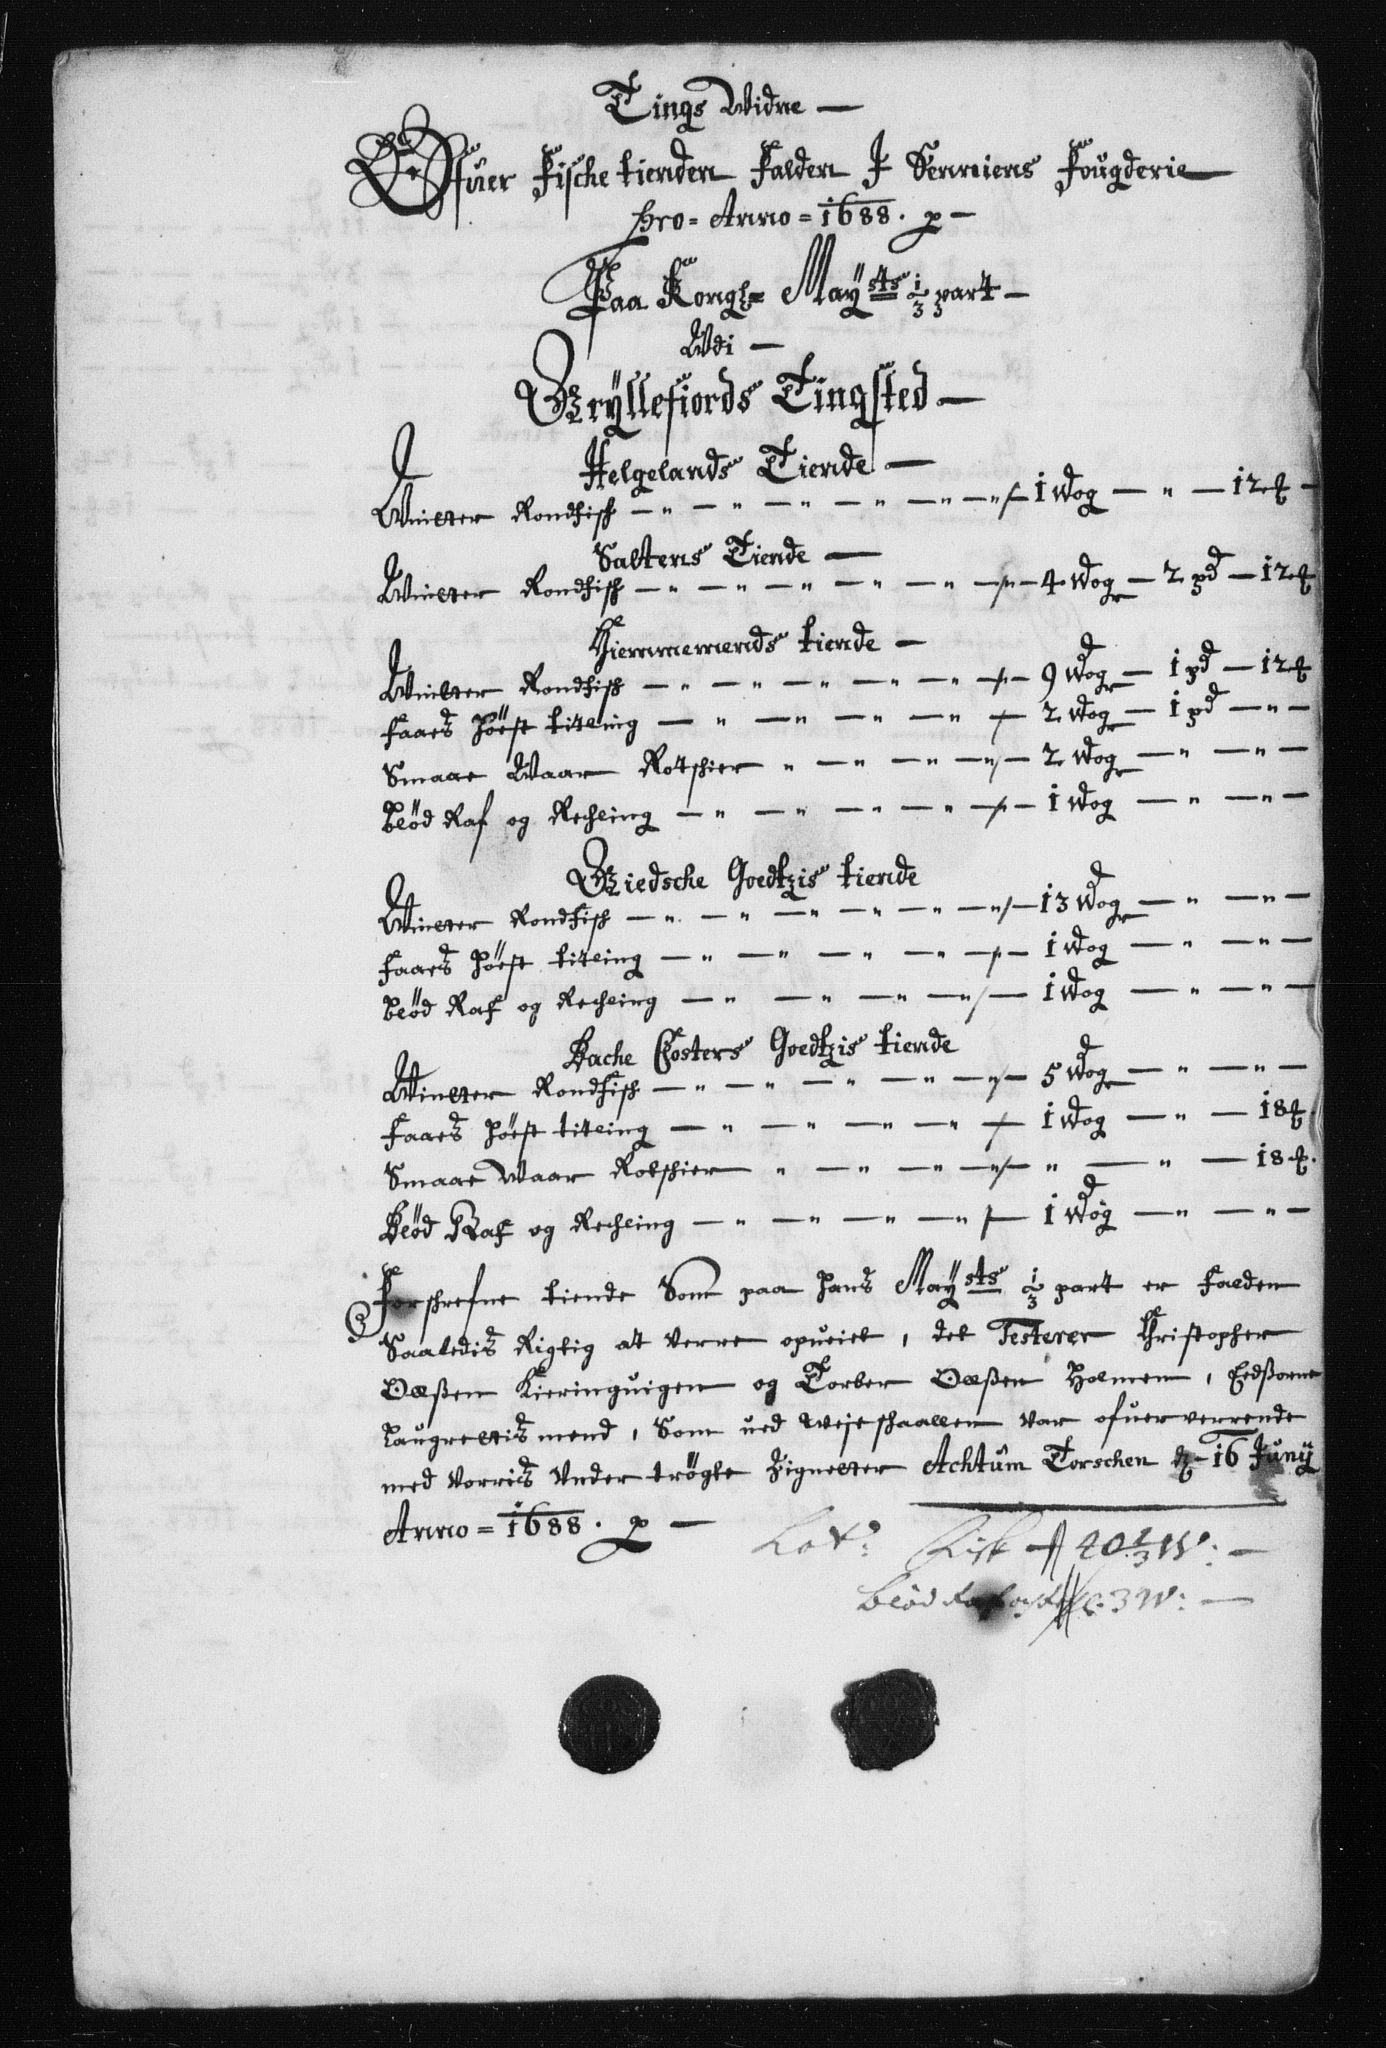 Tings Widne —
Ofuer Fische tienden Falden J Senniens Fougderie
pro = Anno = 1688 . p —
Paa Kongl= Maysts 1/3 part —
Udi —
Gryllefiords Tingsted —
Helgelands Tiende —
Winter Rondfisch — " — " — " — " — " — "/— 1 Wog — " — 12 ℔ —
Saltens Tiende —
Winter Rondfisch — " — " — " — " — " —/— 4 Wogr — 2 pd — 12 ℔
Hiemmemends tiende —
Winter Rondfisch — " — " — " — " — " —/— 9 Wogr — 1 pd — 12 ℔
Faaes Høest titling — " — " — " — " —/— 2 Wogr — 1 pd — " —
Smaae Waar Rotschier " — " — " — "/— 2 Wogr — " — " —
Blød Raf og Rechling — " — " — " — " —/— 1 Wog — " — " —
Giedsche Goedtzis tiende
Winter Rondfisch — " — " — " — " — " — "/— 13 Wogr — " — " —
Faaes Høest titling — " — " — " — " —/— 1 Wog — " — " —
Blød Raf og Rechling — " — " — " — "/— 1 Wog — " — " —
Bache Closters Goedtzis tiende
Winter Rondfisch — " — " — " — " — "/— 5 Wogr — " — " —
Faaes Høest titling — " — " — " — " —/— 1 Wog — " — 18 ℔.
Smaae Waar Rotschier " — " — " — "/— " — " — 18 ℔.
Blød Raf og Rechling — " — " — " — " /— 1 Wog — " — " —
Forschrefne tiende Som paa Hans Maysts 1/3 part er Falden
Saaledis Rigtig at verre opueiet, det Testerer Christopher
Olßen Kieringuigen og Torber Olßen Holmen, Eedßorne
Laugrettis mend, Som ued Wejeschaallen var ofuerverrende
med vorris Under trøgte Zignetter Achtum Torschen d 16 Juny
Anno = 1688 . p —
Lat: Fisk — 40 2/3 W: —
Blød Raf 3 W: —